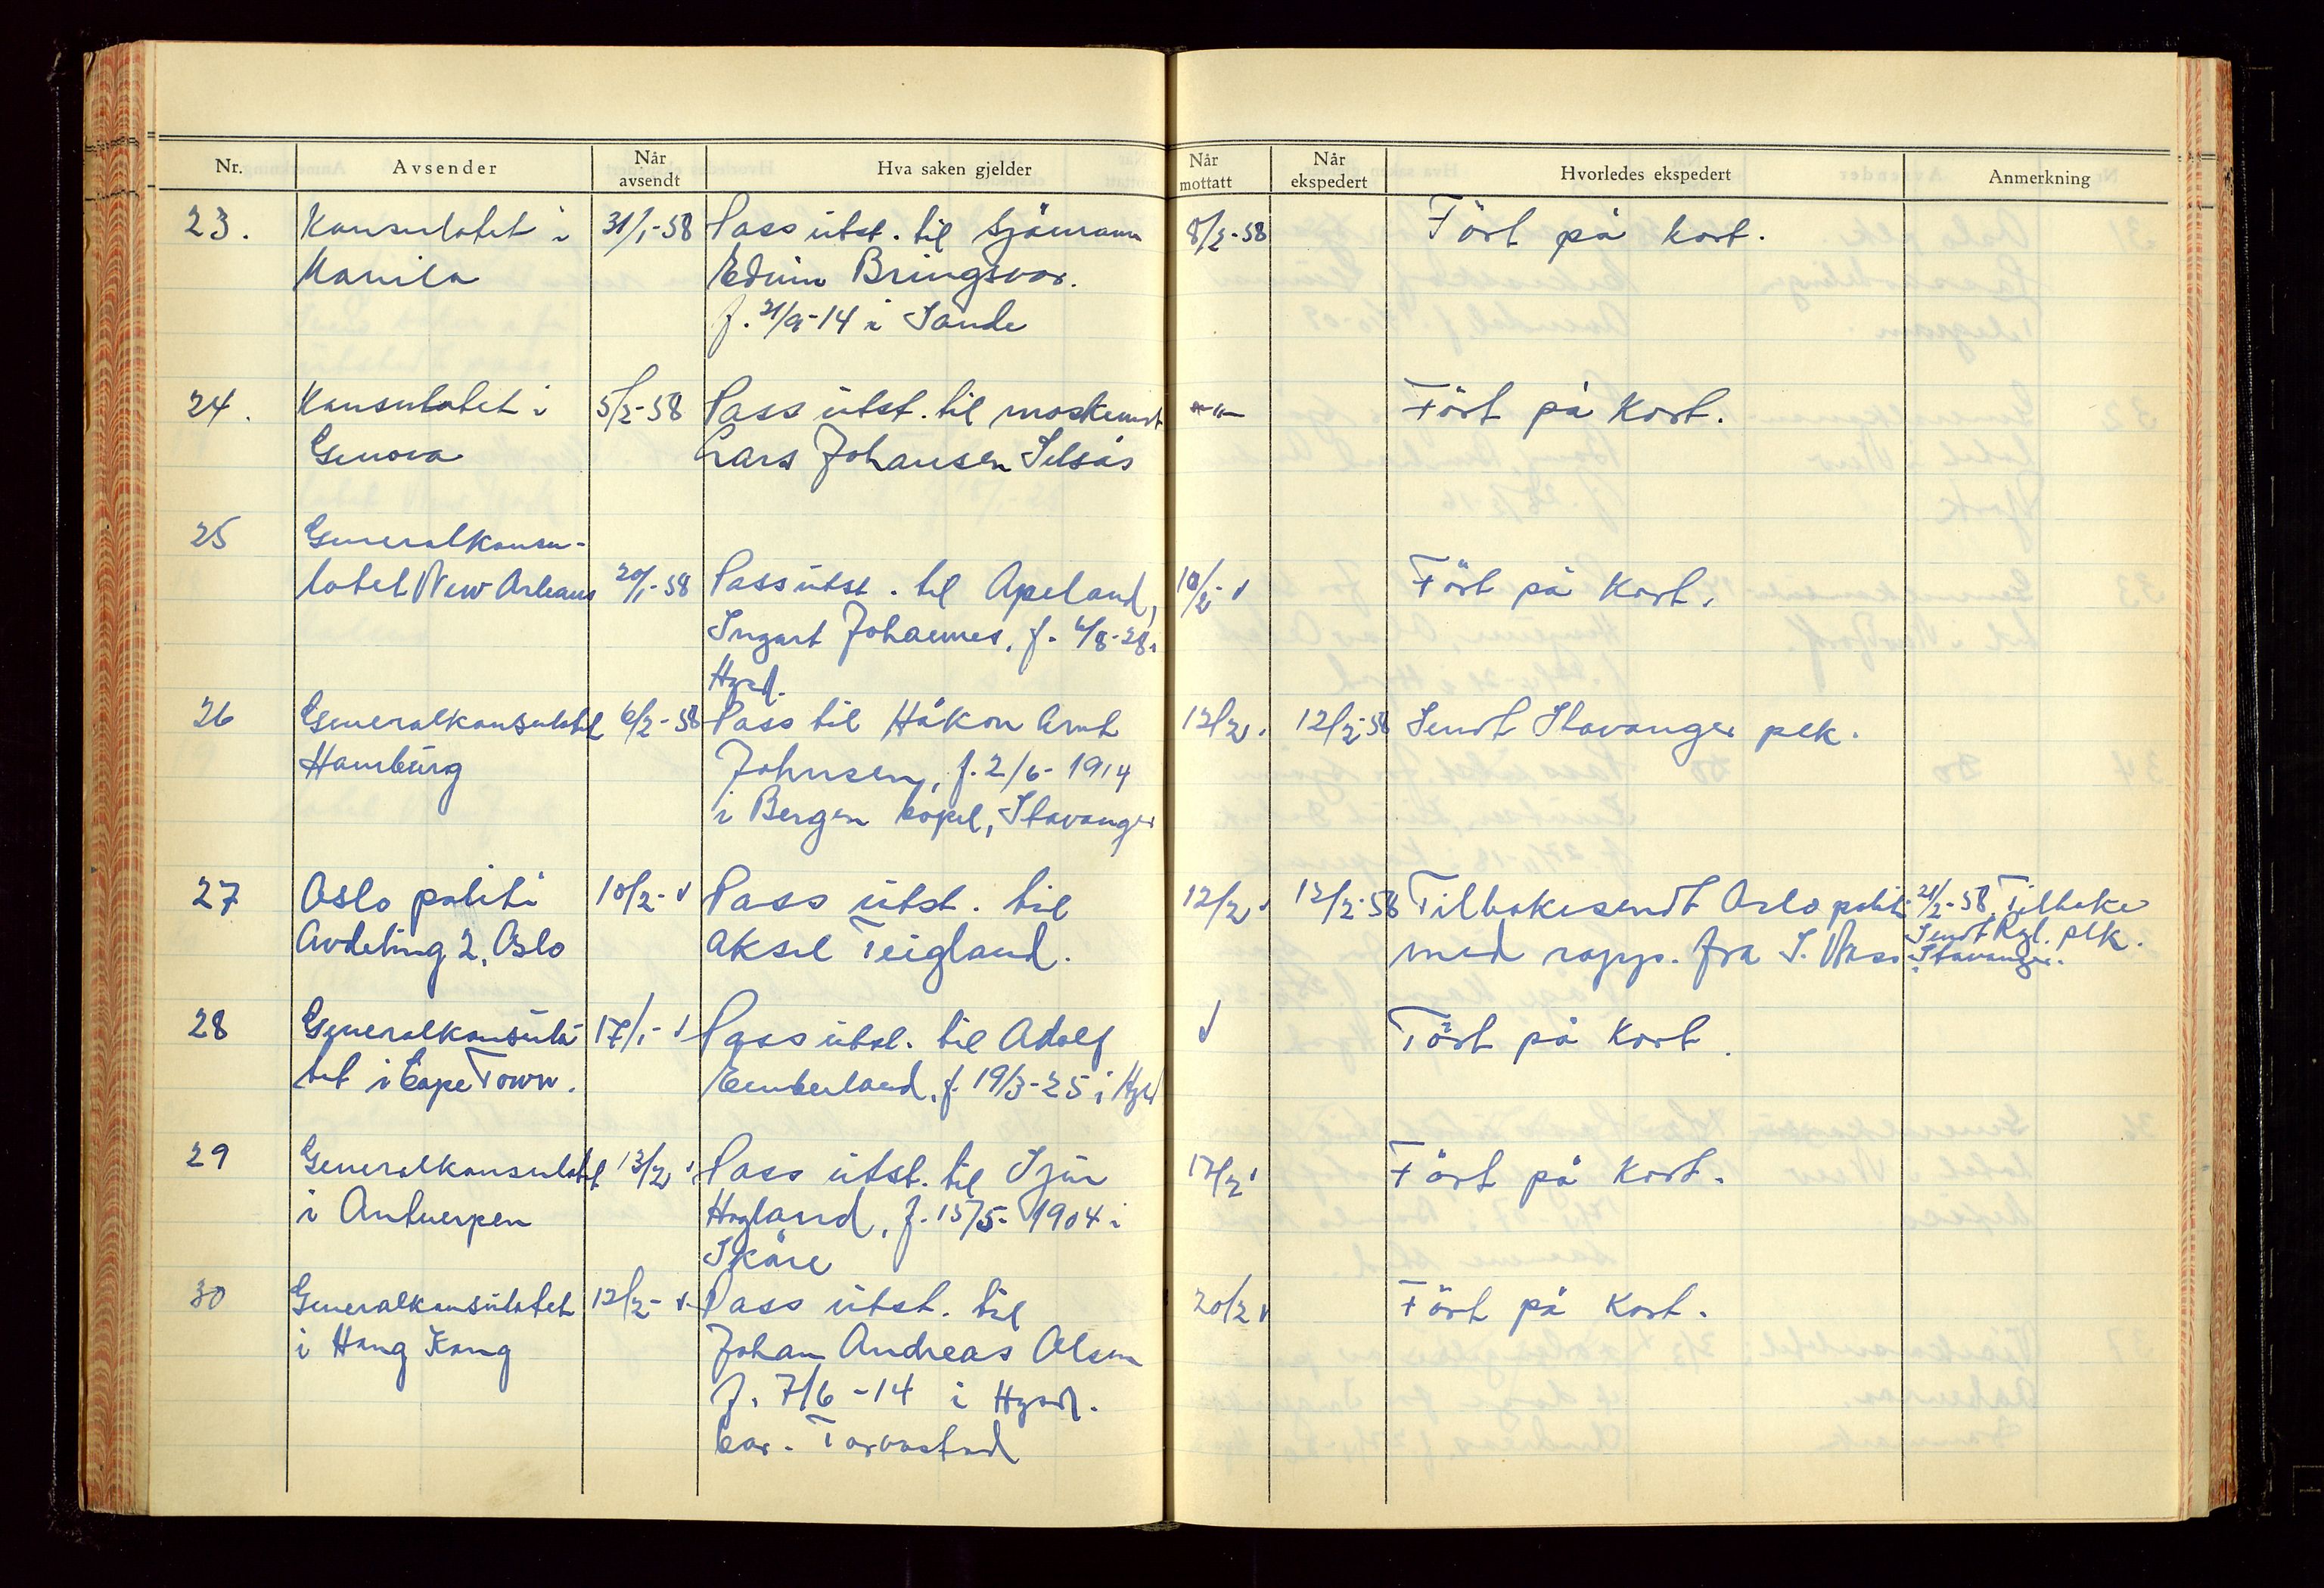 Nr. Avsender Når avsendt Hva saken gjelder Når mottatt Når ekspedert Hvorledes ekspedert Anmerkning
23. Konsulatet i 31/1-58 Pass utst. til sjömann 8/2-58 Fört på kort.
Manila Edvin Bringsvor.
f. 21/9-14 i Sande
24. Konsulatet i 5/2-58 Pass utst. til maskinist -"- Fört på Kort.
Genova Lars Johansen Selsås
25 Generalkonsu-
latet New Orleans 20/1-58 Pass utst. til Apeland, 10/2- Fört på Kort.
Johannes, f. 6/8-28 i
Hgsd.
26 Generalkonsulatet 6/2-58 Pass til Håkon Arnt 12/2. 12/2-58 Sendt Stavanger plk.
Hamburg Johnsen, f. 2/6-1914
i Bergen bopel, Stavanger
27 Oslo politi 10/2- Pass utst. til 12/2 12/2-58 Tilbakesendt Oslo politi 21/2-58 Tilbake
Avdeling 2, Oslo Aksel Teigland. med rapp. fra S. Næss Sendt Rgl. plk.
Stavanger.
28 Generalkonsula- 17/1- Pass utst. til Adolf Fört på Kort.
tet i Cape Town. Emberland, f. 19/3-25 i Hgsd
29 Generalkonsulatet 13/2 Pass utst. til Sjur 17/2 Fört på Kort.
i Antwerpen Hogland, f. 15/5-1904 i
Skåre
30 Generalkonsulatet 12/2- Pass utst. til 20/2 Fört på Kort.
i Hong Kong Johan Andreas Olsen
f. 7/6-14 i Hgsd.
Torvastad